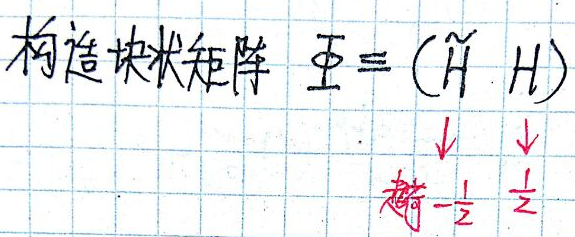 构造块状矩阵 Φ = (H̃ H)
↓ ↓
超荷 -1/2 1/2